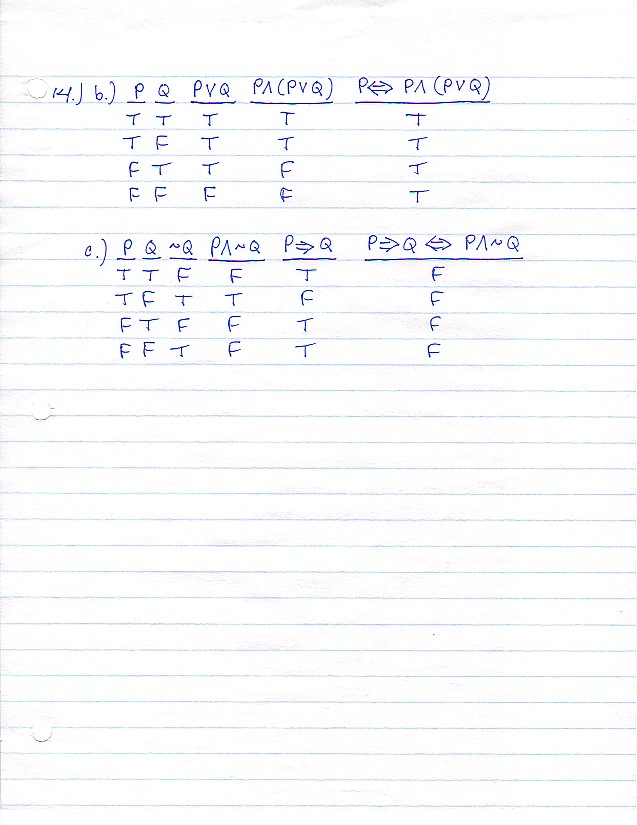 14.) b.) P Q P∨Q P∧(P∨Q) P⇔ P∧(P∨Q)
T T T T T
T F T T T
F T T F T
F F F F T
c.) P Q ~Q P∧~Q P⇒Q P⇒Q ⇔ P∧~Q
T T F F T F
T F T T F F
F T F F T F
F F T F T F